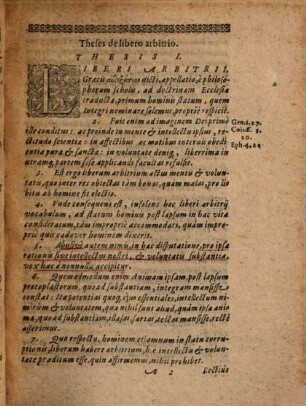 Theses de libero arbitrio.
THESIS I.
LIBERI ARBITRII,
Græcis dicti, appellatio, è philoso-
phorum scholis, ad doctrinam Ecclesiæ
traducta, primum hominis statum, quem
integri nominare solemus, propriè respicit.
2. Fuit enim ad imaginem Dei primò Gen.1.27.
ille conditus: ac proinde in mente & intellectu ipsius, re- Coloss. 3.
ctitudo scientiæ: in affectibus, ac motibus internis obedi- 10.
entia pura & sancta: in voluntate deniq;, liberrima in Eph.4.24
utramq; partem sese applicandi facultas refulsit.
3. Est ergò liberum arbitrium actus mentis & volun-
tatis, quo inter res obiectas tam bonas, quàm malas, pro li-
bitu ab homine fit electio.
4. Unde consequens est, insolens hoc liberi arbitrii
vocabulum, ad statum hominis post lapsum in hac vita
considerandum, tam impropriè accommodari, quàm impro-
priè quis cadaver hominem dixerit.
5. Abusivè autem nimis, in hac disputatione, pro ipsa
rationis sive intellectus nostri, & voluntatis substantia,
vox hæc à nonnullis accipitur.
6. Quemadmodum enim Animam ipsam, post lapsum
protoplastorum, quoad substantiam, integram mansisse
constat: Ita potentias quoq; ejus essentiales, intellectum ni-
mirum & voluntatem, quæ nihil sunt aliud, quàm ipsa ani-
ma, quoad substantiam, illæsas, sartas, rectas mansisse, rectè
asserimus.
7. Quo respectu, hominem etiamnum in statu corru-
ptionis, liberum habere arbitrium, h.e. intellectu & volun-
tate præditum esse, quin affirmemus, nihil prohibet.
A 2 Rectius